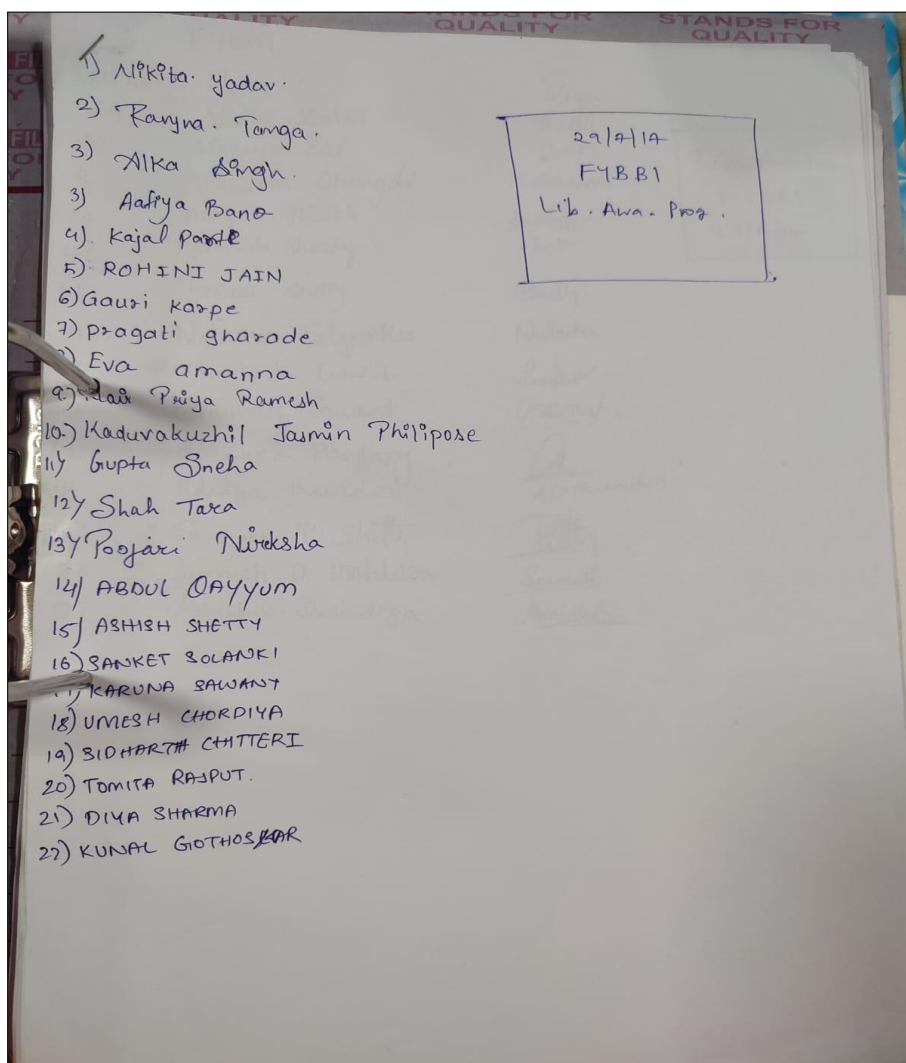 QUALITY
STANDS FOR
QUALITY
STANDS FOR
QUALITY
1) Nikita. yadav.
2) Ranjna. Tamga.
3) Alka Singh.
3) Aafiya Bano
4). Kajal Parte
5). ROHINI JAIN
6) Gauri Karpe
7) Pragati gharade
) Eva amanna
9.) Priya Ramesh
10.) Kaduvakuzhil Jasmin Philipose
11) Gupta Sneha
12) Shah Tara
13) Poojari Nireksha
14) ABDUL QAYYUM
15) ASHISH SHETTY
16) SANKET SOLANKI
) KARUNA SAWANT
18) UMESH CHORDIYA
19) SIDHARTH CHITTERI
20) TOMITA RAJPUT.
21) DIYA SHARMA
22) KUNAL GOTHOSKAR
29/7/17
FYBBI
Lib. Awa. Prog.